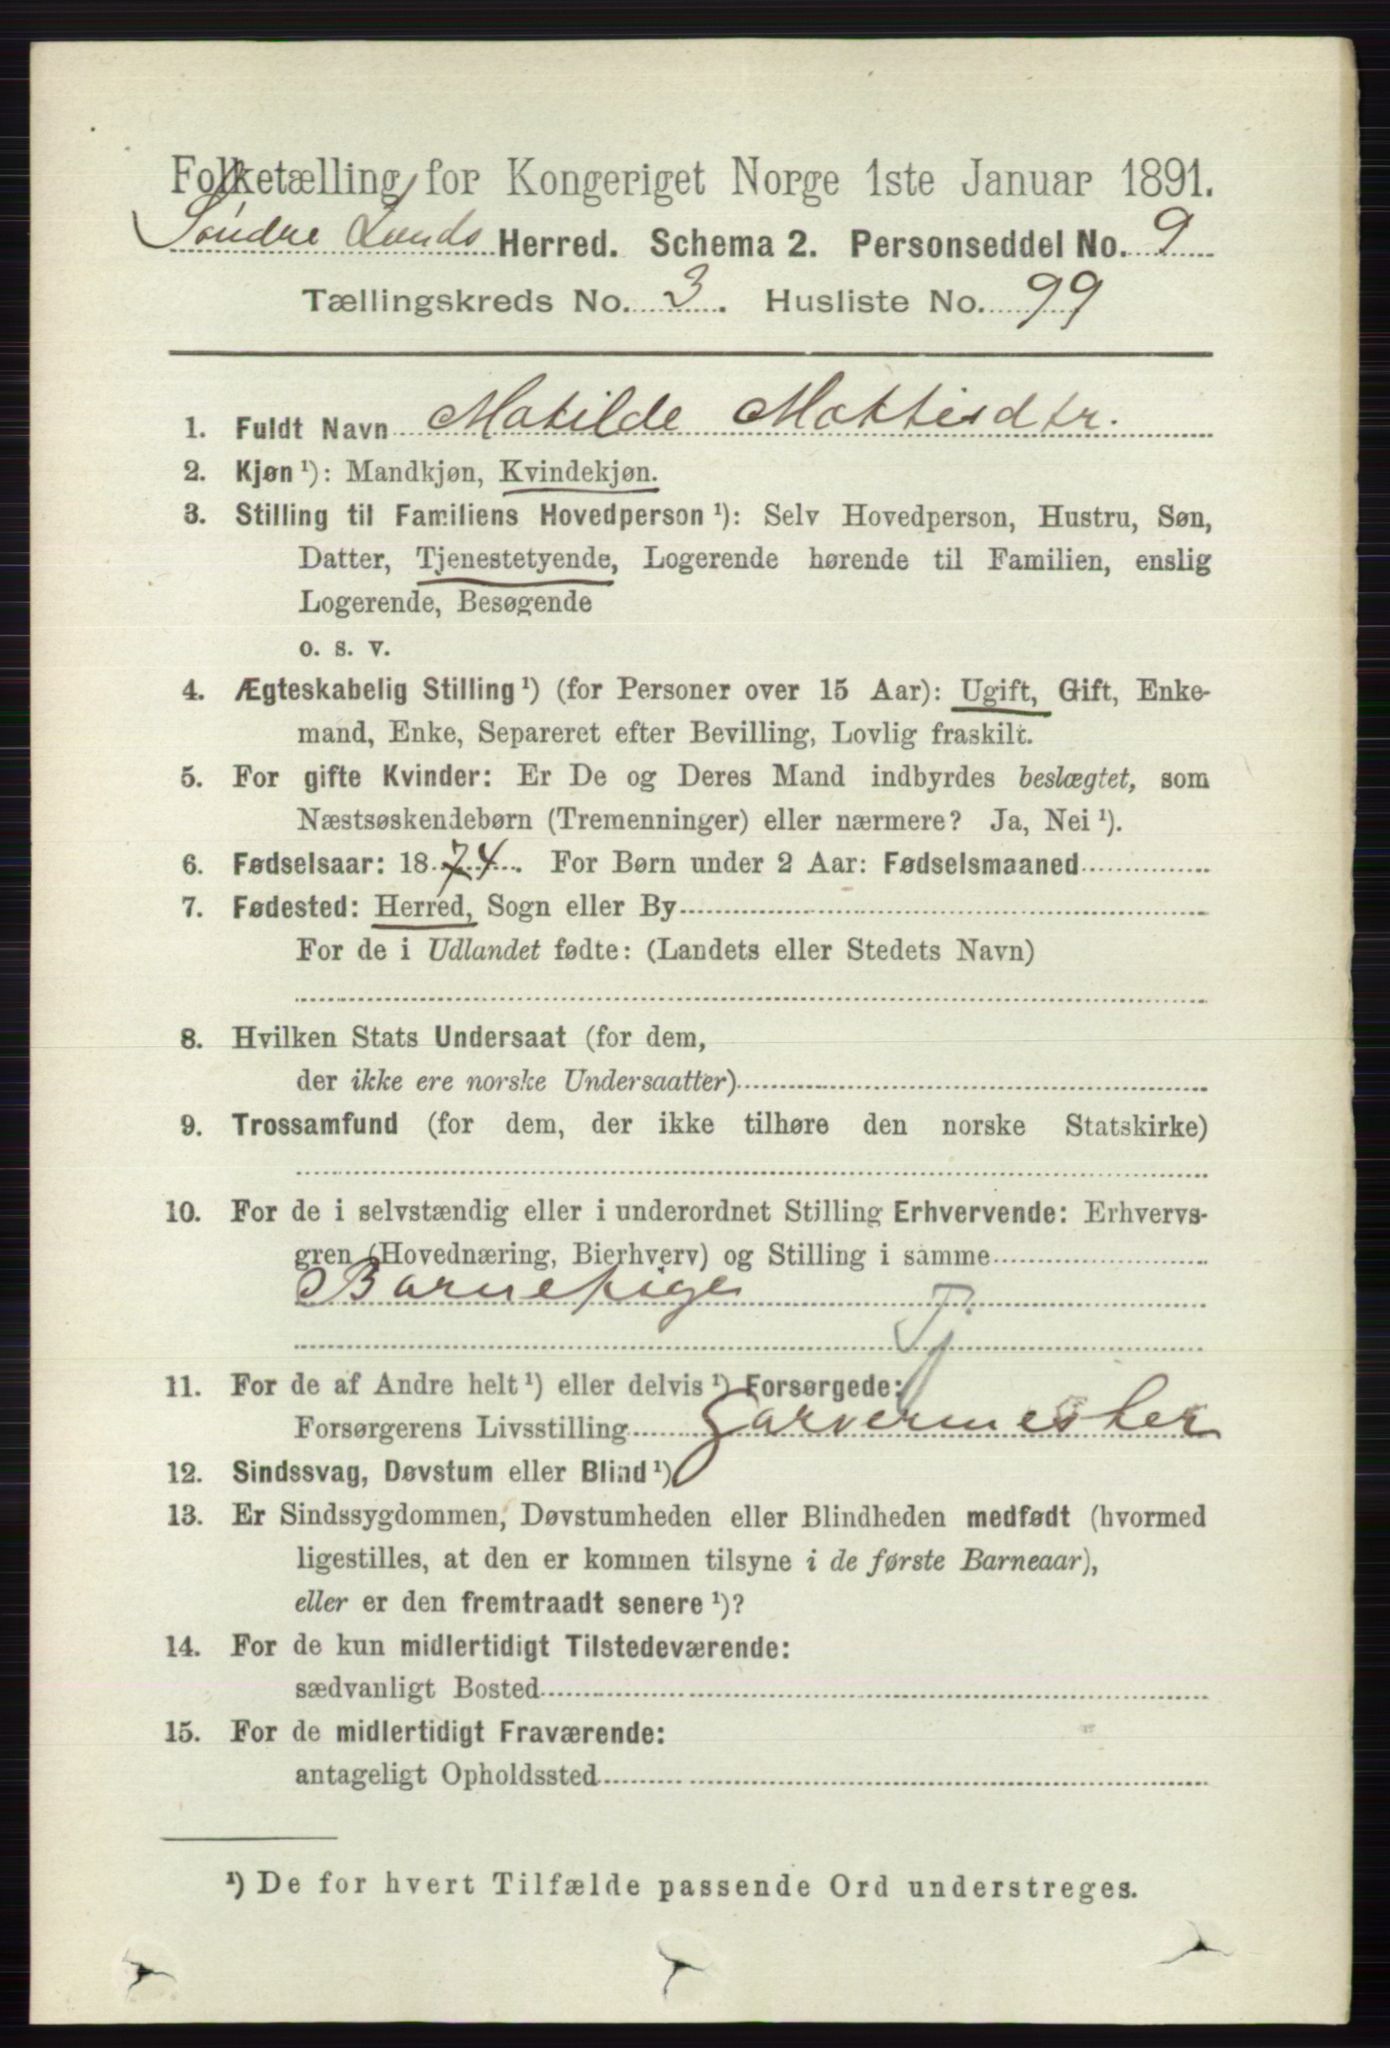 Folketælling for Kongeriget Norge 1ste Januar 1891.
Søndre Lands Herred. Schema 2. Personseddel No. 9
Tællingskreds No. 3. Husliste No. 99
1. Fuldt Navn Matilde Mattisdtr.
2. Kjøn ¹): Mandkjøn, Kvindekjøn.
3. Stilling til Familiens Hovedperson ¹): Selv Hovedperson, Hustru, Søn,
Datter, Tjenestetyende, Logerende hørende til Familien, enslig
Logerende, Besøgende
o. s. v.
4. Ægteskabelig Stilling ¹) (for Personer over 15 Aar): Ugift, Gift, Enke-
mand, Enke, Separeret efter Bevilling, Lovlig fraskilt.
5. For gifte Kvinder: Er De og Deres Mand indbyrdes beslægtet, som
Næstsøskendebørn (Tremenninger) eller nærmere? Ja, Nei ¹).
6. Fødselsaar: 1874. For Børn under 2 Aar: Fødselsmaaned
7. Fødested: Herred, Sogn eller By
For de i Udlandet fødte: (Landets eller Stedets Navn)
8. Hvilken Stats Undersaat (for dem,
der ikke ere norske Undersaatter)
9. Trossamfund (for dem, der ikke tilhøre den norske Statskirke)
10. For de i selvstændig eller i underordnet Stilling Erhvervende: Erhvervs-
gren (Hovednæring, Bierhverv) og Stilling i samme
Barnepige
Tj
11. For de af Andre helt ¹) eller delvis ¹) Forsørgede:
Forsørgerens Livsstilling Garvermester
12. Sindssvag, Døvstum eller Blind ¹)
13. Er Sindssygdommen, Døvstumheden eller Blindheden medfødt (hvormed
ligestilles, at den er kommen tilsyne i de første Barneaar),
eller er den fremtraadt senere ¹)?
14. For de kun midlertidigt Tilstedeværende:
sædvanligt Bosted
15. For de midlertidigt Fraværende:
antageligt Opholdssted
¹) De for hvert Tilfælde passende Ord understreges.